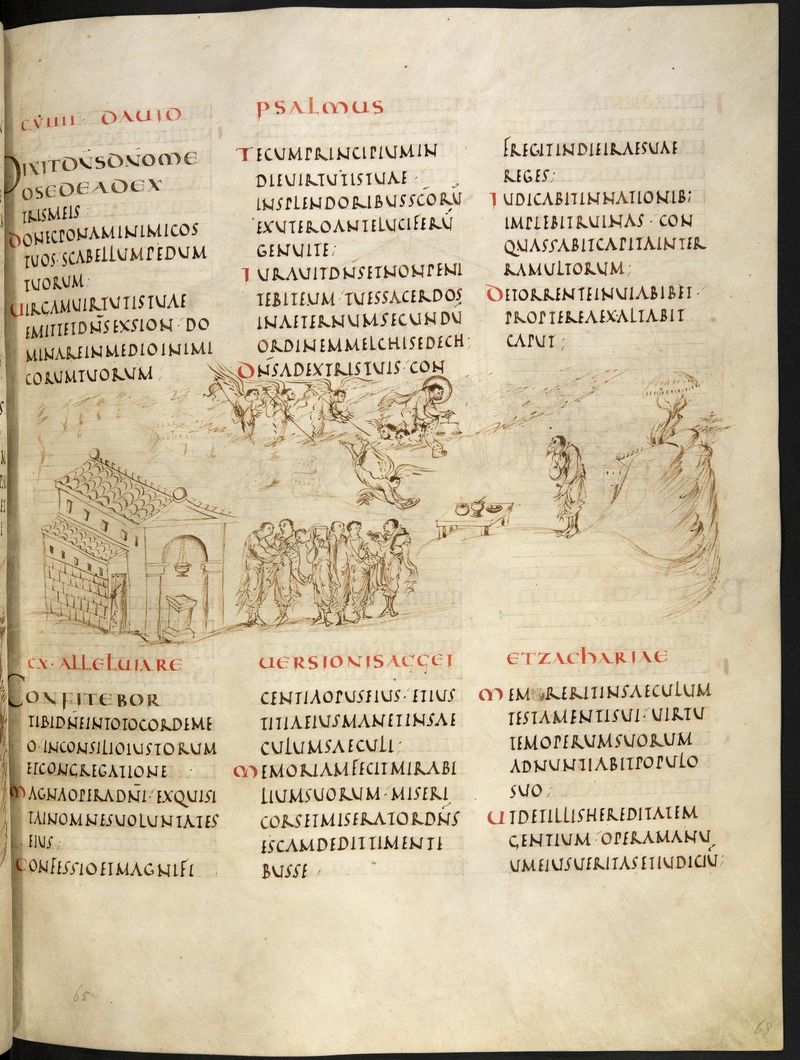 CVIIII · DAUID
PSALMUS
DIXITDN̄SDN̄OMEO
SEDEADEX
TRISMEIS
DONECPONAMINIMICOS
TUOS·SCABELLUMPEDUM
TUORUM·
UIRGAMUIRTUTISTUAE
EMITTETDN̄SEXSION·DO
MINAREINMEDIOINIMI
CORUMTUORUM;
TECUMPRINCIPIUMIN
DIEUIRTUTISTUAE·
INSPLENDORIBUSSCORŪ
EXUTEROANTELUCIFERŪ
GENUITE;
IURAUITDN̄SETNONPENI
TEBITEUM·TUESSACERDOS
INAETERNUMSECUNDŪ
ORDINEMMELCHISEDECH;
DN̄SADEXTRISTUIS·CON
FREGITINDIEIRAESUAE
REGES·
IUDICABITINNATIONIB;
IMPLEBITRUINAS·CON
QUASSABITCAPITAINTER
RAMULTORUM;
DETORRENTEINUIABIBET·
PROPTEREAEXALTABIT
CAPUT;
CX·ALLELUIARE
UERSIONISAGGEI
ETZACHARIAE
CONFITEBOR
TIBIDN̄EINTOTOCORDEME
O·INCONSILIOIUSTORUM
ETCONGREGATIONE;
MAGNAOPERADN̄I·EXQUISI
TAINOMNESUOLUNTATES
EIUS;
CONFESSIOETMAGNIFI
CENTIAOPUSEIUS·ETIUS
TITIAEIUSMANETINSAE
CULUMSAECULI·
MEMORIAMFECITMIRABI
LIUMSUORUM·MISERI
CORSETMISERATORDN̄S
ESCAMDEDITTIMENTI
BUSSE;
MEMORERITINSAECULUM
TESTAMENTISUI·UIRTU
TEMOPERUMSUORUM
ADNUNTIABITPOPULO
SUO;
UTDETILLISHEREDITATEM
GENTIUM·OPERAMANU
UMEIUSUERITASETIUDICIŪ;
65
68